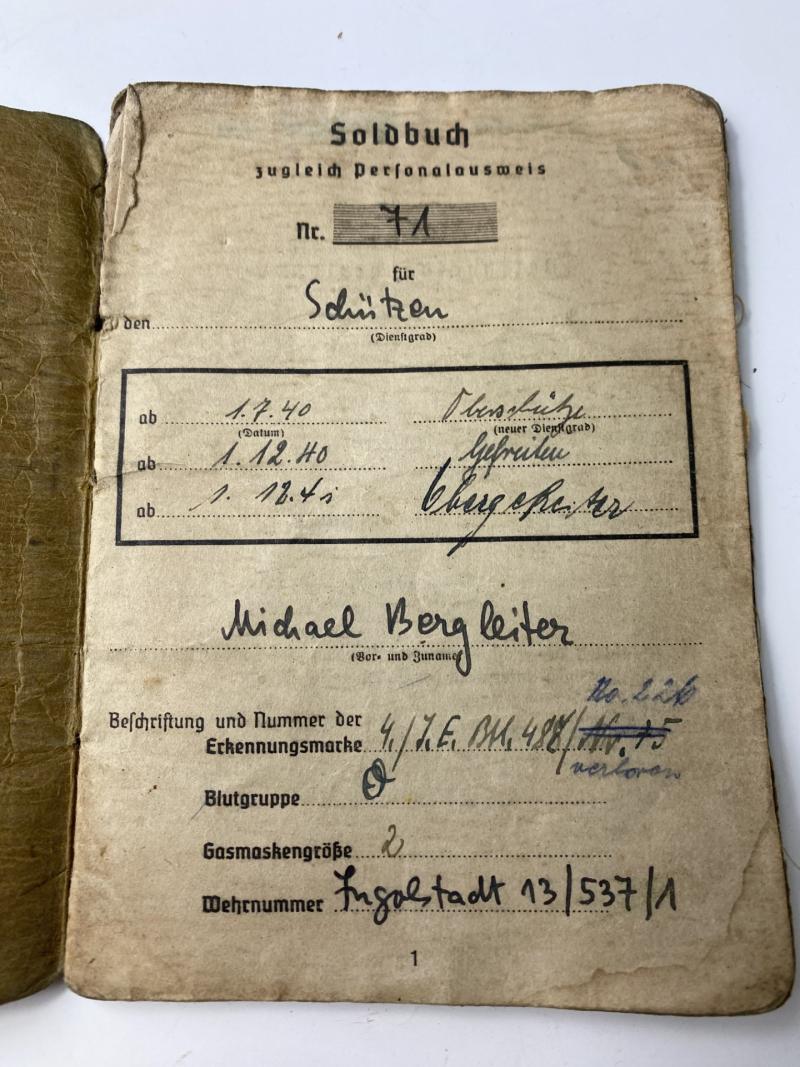 Soldbuch
zugleich Personalausweis
Nr. 71
für
den Schützen
(Dienstgrad)
ab 1.7.40 Oberschütze
(Datum) (neuer Dienstgrad)
ab 1.12.40 Gefreiten
ab 1. 12.41 Obergefreiter
Michael Bergleiter
(Vor- und Zuname)
Beschriftung und Nummer der
Erkennungsmarke 4./I.E. Btl. 488/ Nr. 15
verloren
Blutgruppe O
Gasmaskengröße 2
Wehrnummer Ingolstadt 13/537/1
1